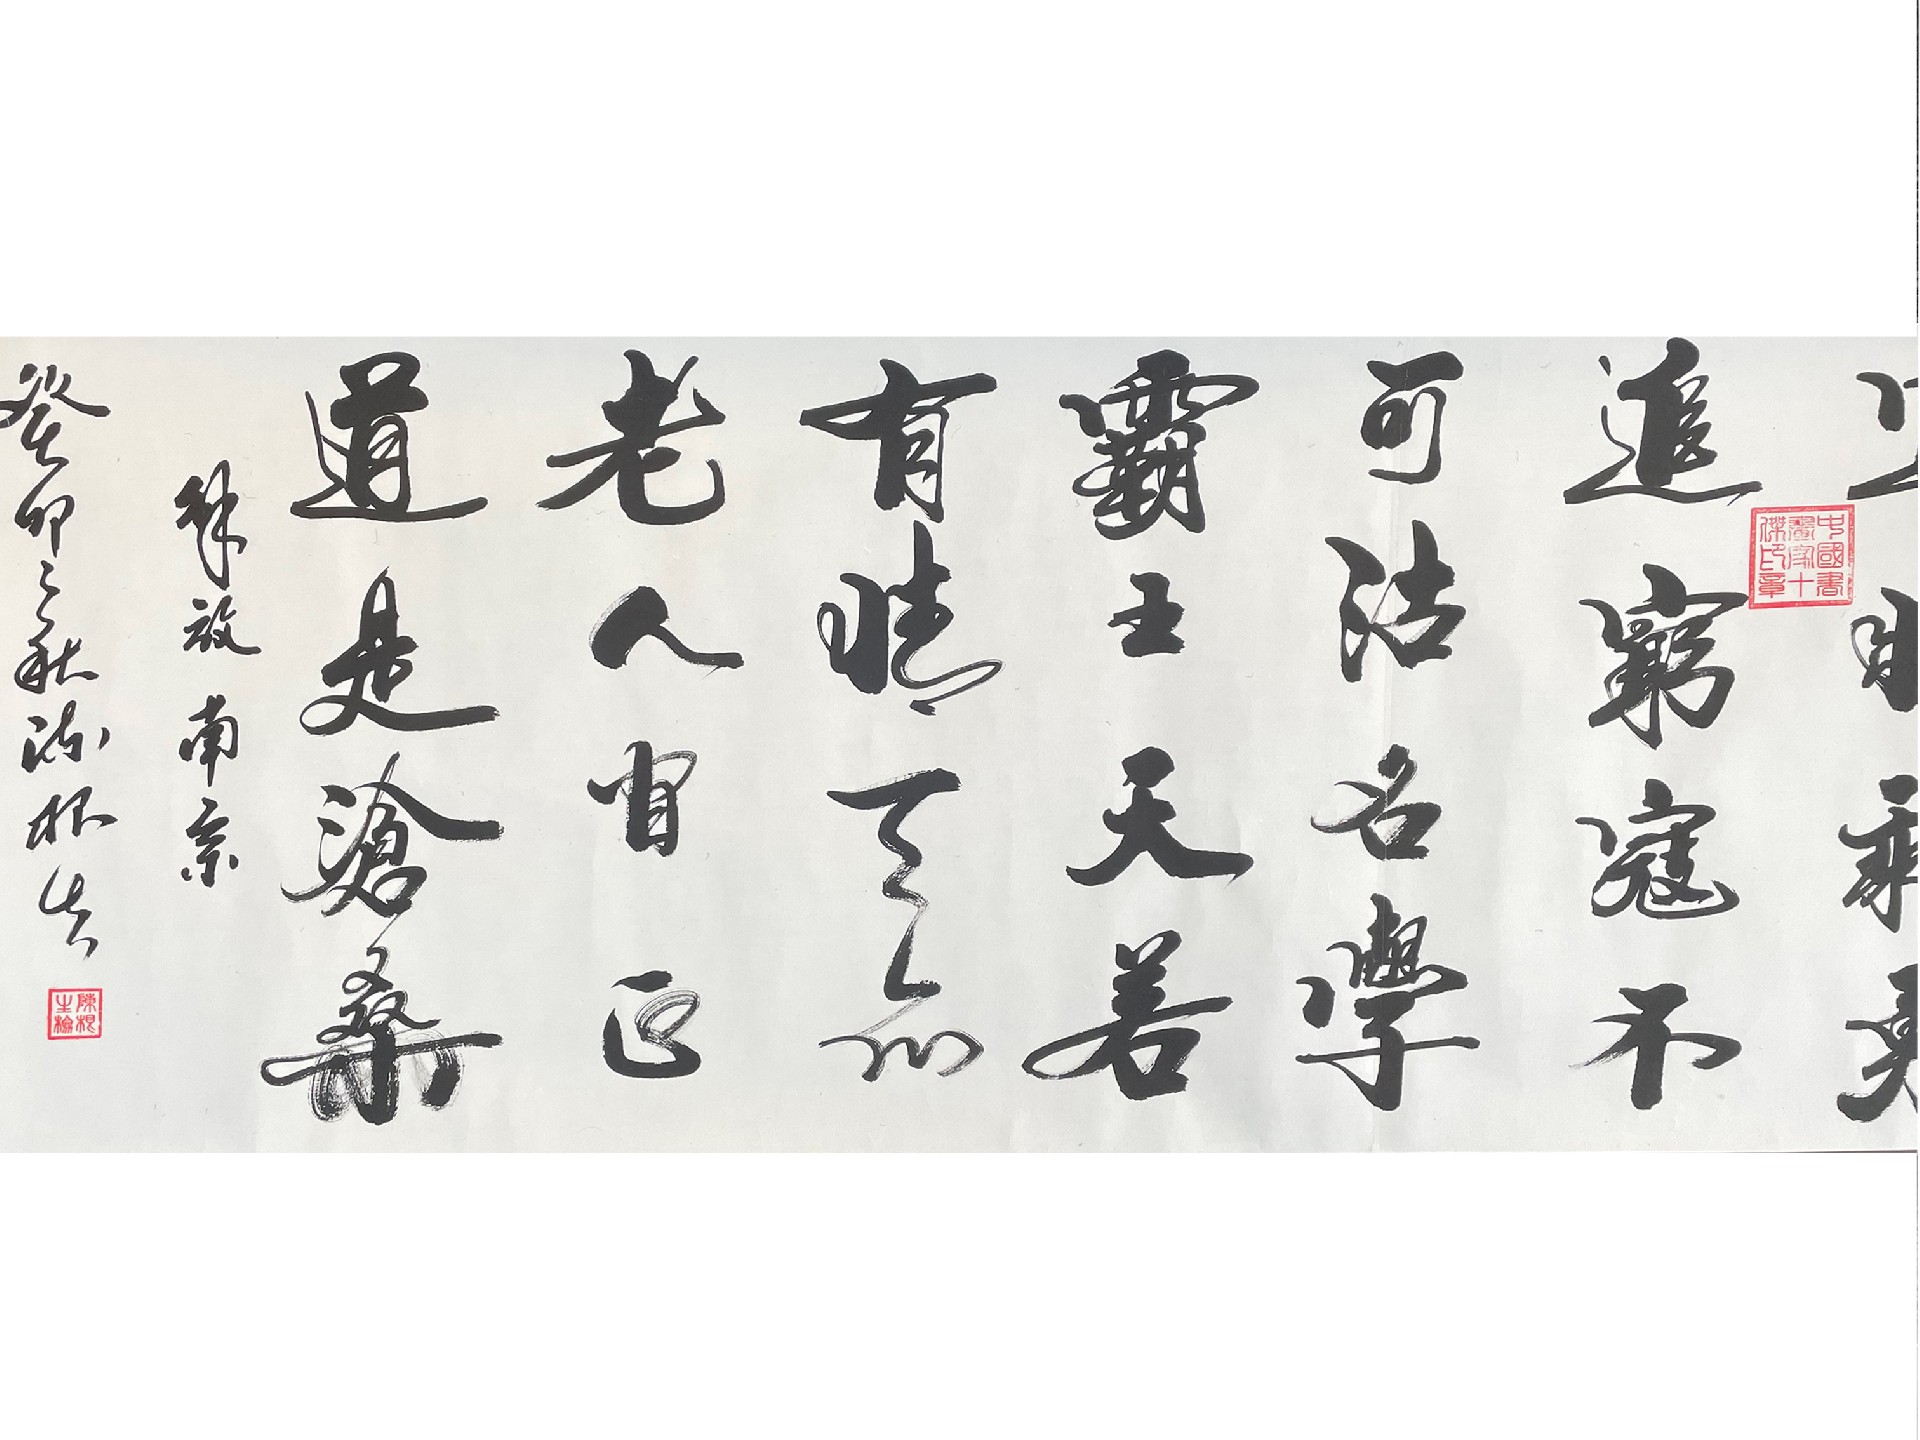 追窮寇不
可沽名學
霸王天若
有情天亦
老人間正
道是滄桑
解放南京
癸卯之秋陳根生
中國書
畫家十
傑印章
陳根
生翰